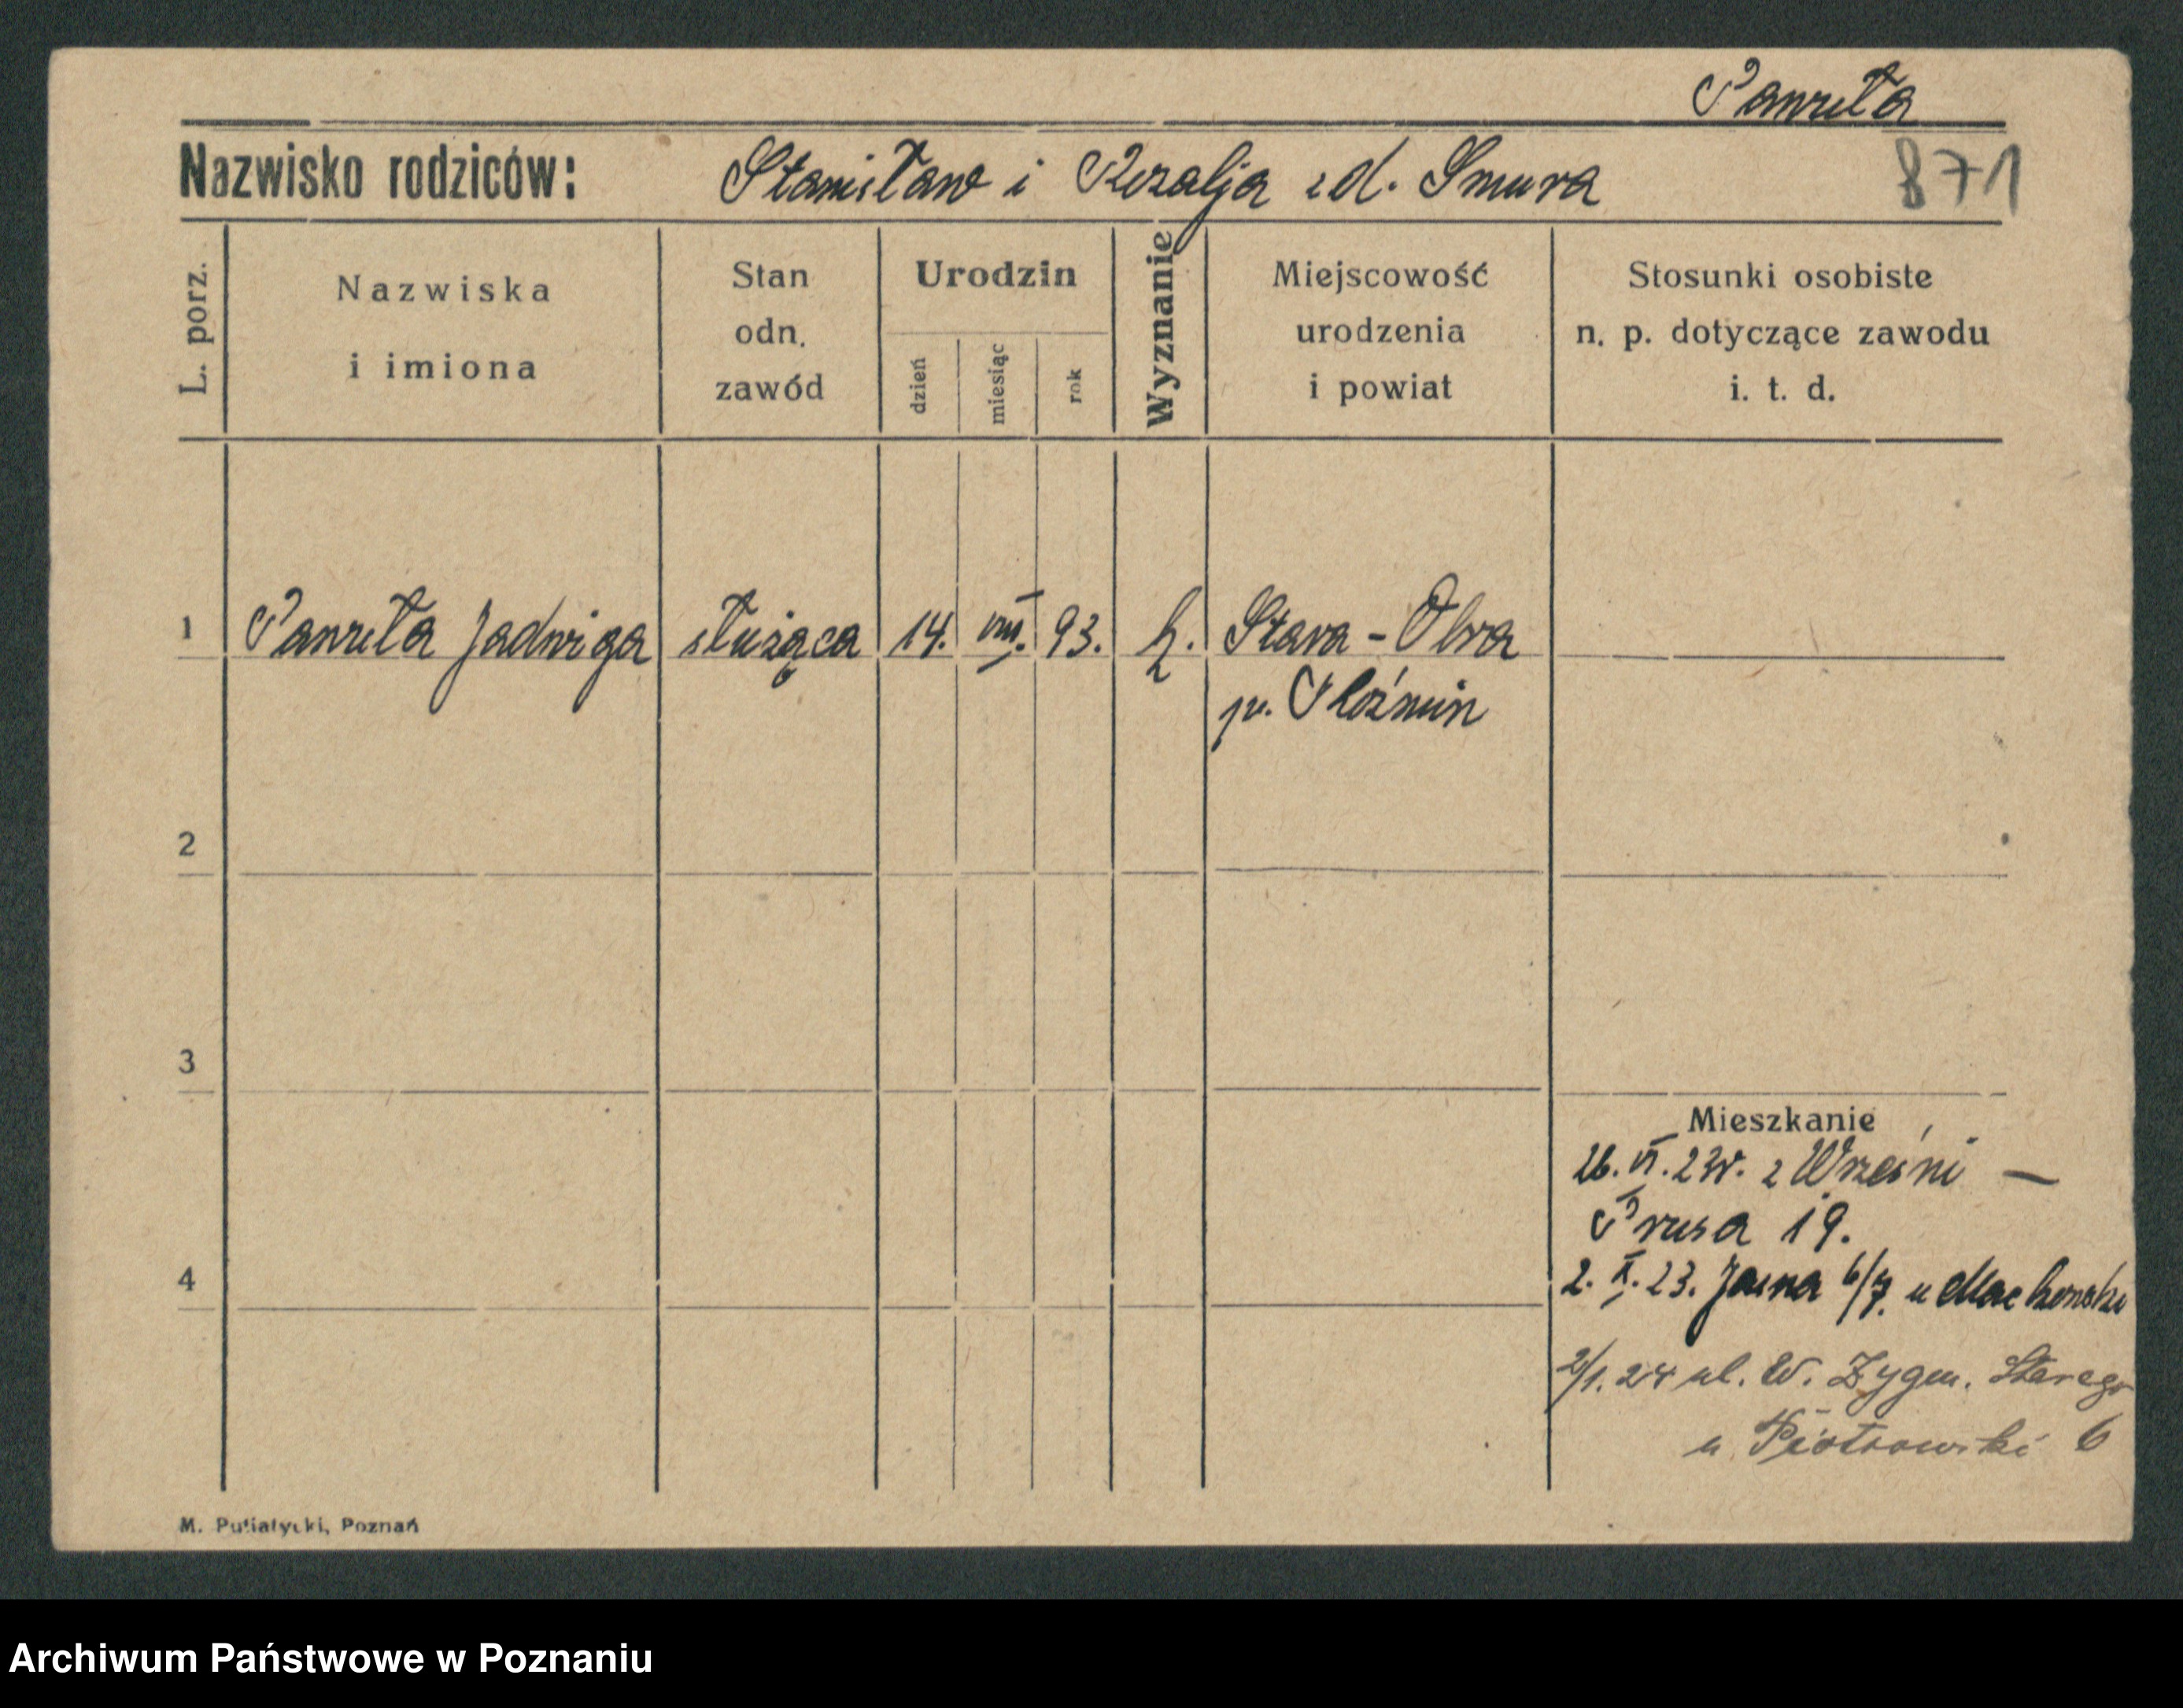 Pawuła
Nazwisko rodziców: Stanisław i Rozalja z d. Smura 871
L. porz. Nazwiska i imiona Stan odn. zawód Urodzin dzień miesiąc rok Wyznanie Miejscowość urodzenia i powiat Stosunki osobiste n. p. dotyczące zawodu i. t. d.
1 Jadwiga służąca 14. VIII. 93. k. Stara-Obra
p. Koźmin
2
3
Mieszkanie
26. VI. 23r. z Wrześni —
Prusa 19.
4
2. X. 23. Jasna 6/7. u
2/1. 24 ul. W. Zygm. Starego
u Piotrowski 6
M. Putiatycki, Poznań
Archiwum Państwowe w Poznaniu